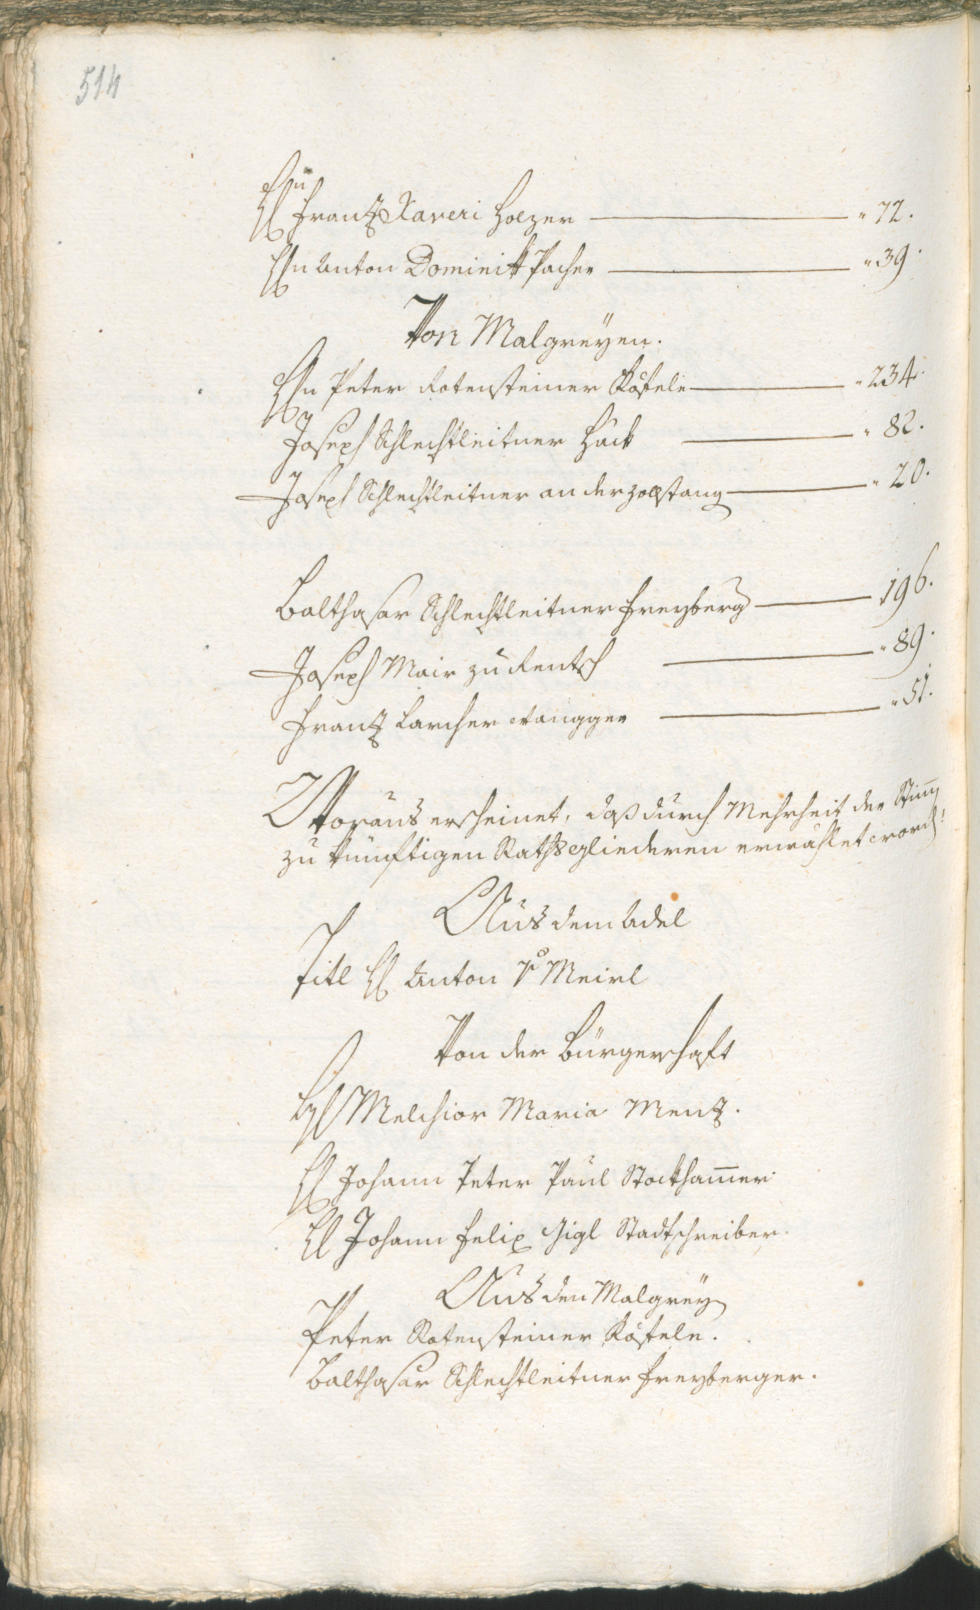 514
Hn
H Frantz Xaveri Holzer — " 72.
Hn Anton Dominikh Pacher — " 39.
Von Malgreyen.
Hn Peter Rotensteiner Köstele — " 234.
Joseph Schlechtleitner Häck — " 82.
Joseph Schlechtleitner an der Zollstang — " 20.
Balthasar Schlechtleitner Freyberg — 196.
Joseph Mair zu Rentsch — " 89.
Frantz Larcher Wangger — " 51.
Woraus erscheinet, daß durch Mehrheit der Stim̄
zu künftigen Rathsgliederen erwählet word:
Aus dem Adel
Titl H Anton v Meirl
Von der Bürgerschaft
H Melchior Maria Mentz.
H Johann Peter Paul Stockham̄er
H Johann Felix Gigl Stadtschreiber.
Aus den Malgrey
Peter Rotensteiner Köstele.
Balthasar Schlechtleitner Freyberger.